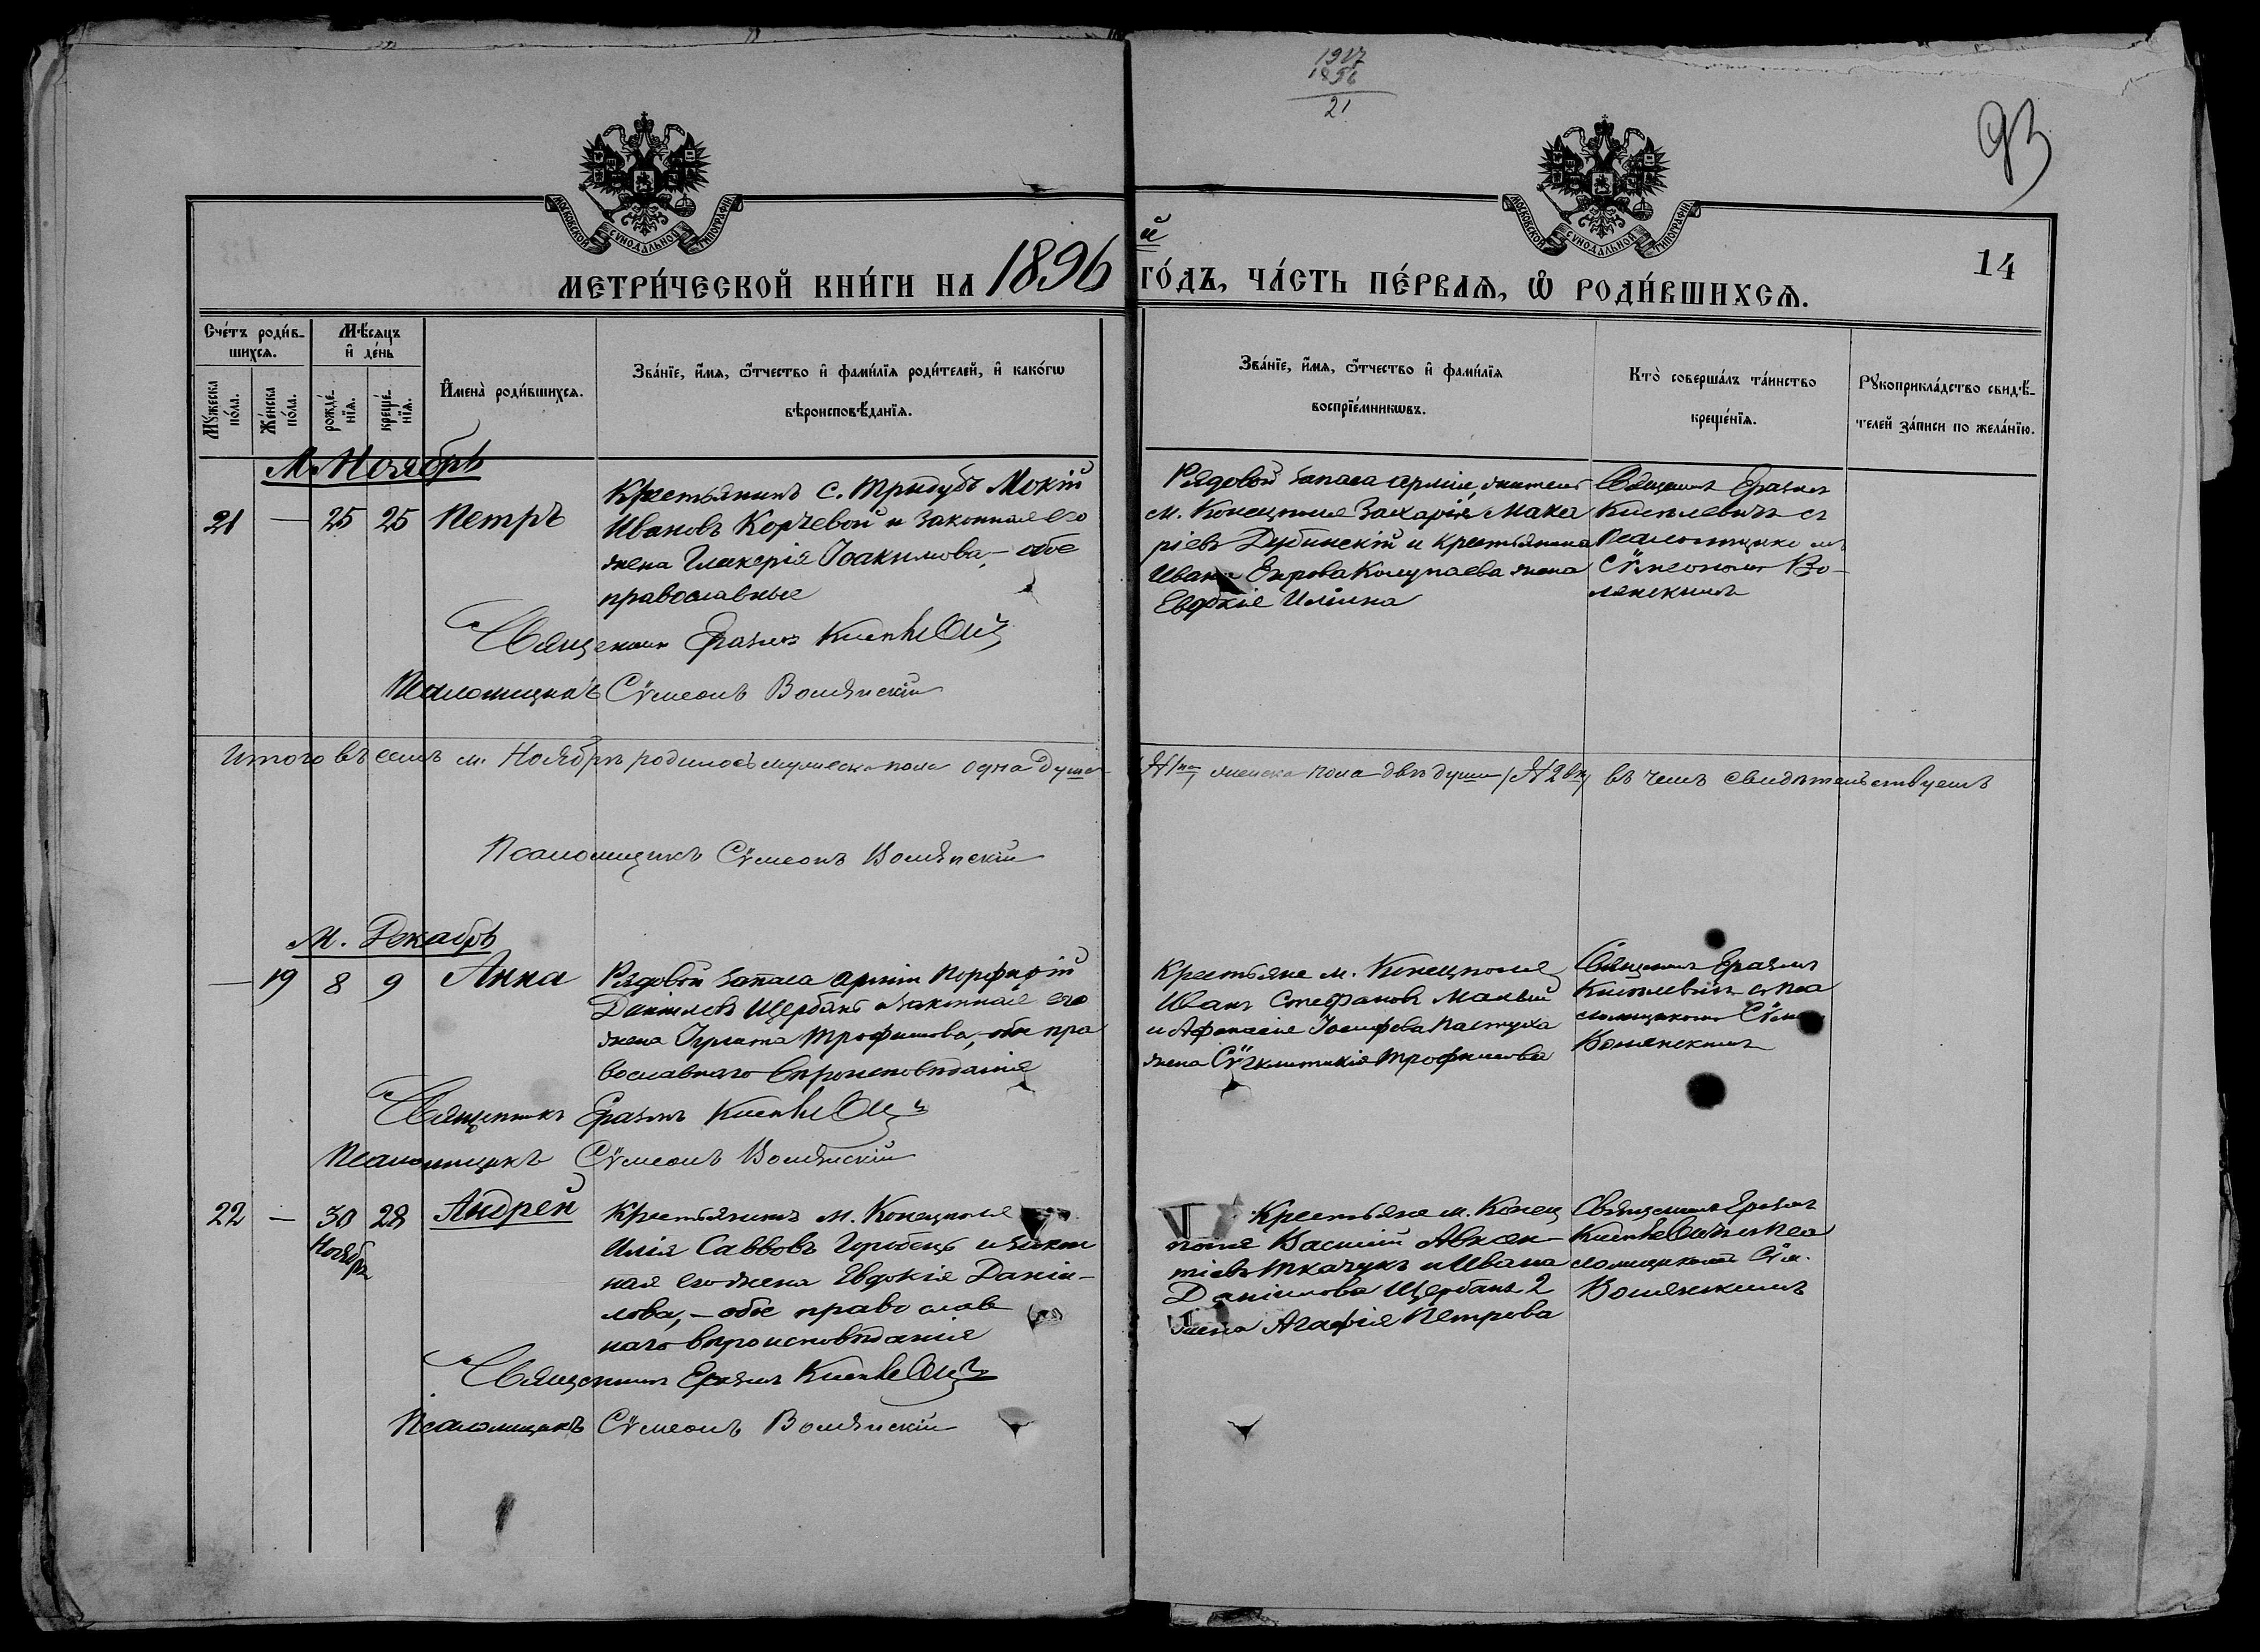 1917
1896
21
93
14
МОСКОВСКОЙ СѴНОДАЛЬНОЙ ТИПОГРАФІИ
МОСКОВСКОЙ СѴНОДАЛЬНОЙ ТИПОГРАФІИ
МЕТРИ́ЧЕСКОЙ КНИ́ГИ НА 1896 й ГО́ДЪ, ЧА́СТЬ ПЕ́РВАѦ, Ѡ҆ РОДИ́ВШИХСѦ.
Счéтъ роди́в-
шихсѧ.
Мѣ́сѧцъ
и҆ де́нь
Мꙋ́жеска
по́ла.
Же́нска
по́ла.
рожде́-
нїѧ.
креще́-
нїѧ.
И҆мена̀ роди́вшихсѧ.
Зва́нїе, и҆́мѧ, ѻ҆́тчество и҆ фами́лїѧ роди́телей, и҆ како́гѡ
вѣроисповѣ́данїѧ.
Зва́нїе, и҆́мѧ, ѻ҆́тчество и҆ фами́лїѧ
воспрїе́мникѡвъ.
Кто̀ соверша́лъ та́инство
креще́нїѧ.
Рꙋкоприкла́дство свидѣ́-
телей за́писи по жела́нїю.
М. Ноябрь
21 — 25 25 Петръ
Крестьянинъ с. Тридубъ Мокій
Ивановъ Корчевой и законная его
жена Гликерія Іоакимова, — обое
православные
Рядовой запаса арміи, житель
м. Конецполя Захарія Мака
ріевъ Дубинскій и крестьянина
Ивана Колупаева жена
Евдокія Иліина
Священникъ Еразмъ
Киселевичъ съ
Псаломщикомъ
Сѵмеономъ Во-
лянскимъ
Священникъ Еразмъ Киселевичъ
Псаломщикъ Сѵмеонъ Волянскій
Итого въ семъ м. Ноябрѣ родилось мужеска пола одна душа (№ 1на) женска пола двѣ души (№ 2вѣ) въ чемъ свидѣтельствуемъ
Псаломщикъ Сѵмеонъ Волянскій
М. Декабрь
— 19 8 9 Анна
Рядовой запаса арміи Порфирій
Даніиловъ Щербань и законная его
жена Трофимова, обое пра
вославнаго вѣроисповѣданія
Крестьяне м. Конецполя
Иванъ Стефановъ Малый
и Іосифова Пастуха
жена Сѵнклитикія Трофимова
Священникъ Еразмъ
Киселевичъ съ Пса
ломщикомъ Сѵмеон
Волянскимъ
Священникъ Еразмъ Киселевичъ
Псаломщикъ Сѵмеонъ Волянскій
22 — 30 28 Андрей
Ноября
Крестьянинъ м. Конецполя
Илія Саввовъ Горобець и закон
ная его жена Евдокія Даніи-
лова, — обое православ
наго вѣроисповѣданія
Крестьяне м. Конец
поля Василій Авксен-
тіевъ Ткачукъ и Ивана
Даніилова Щербань 2
жена Агафія Петрова
Священникъ Еразмъ
Киселевичъ и Пса
ломщикомъ Сѵм.
Волянскимъ
Священникъ Еразмъ Киселевичъ
Псаломщикъ Сѵмеонъ Волянскій